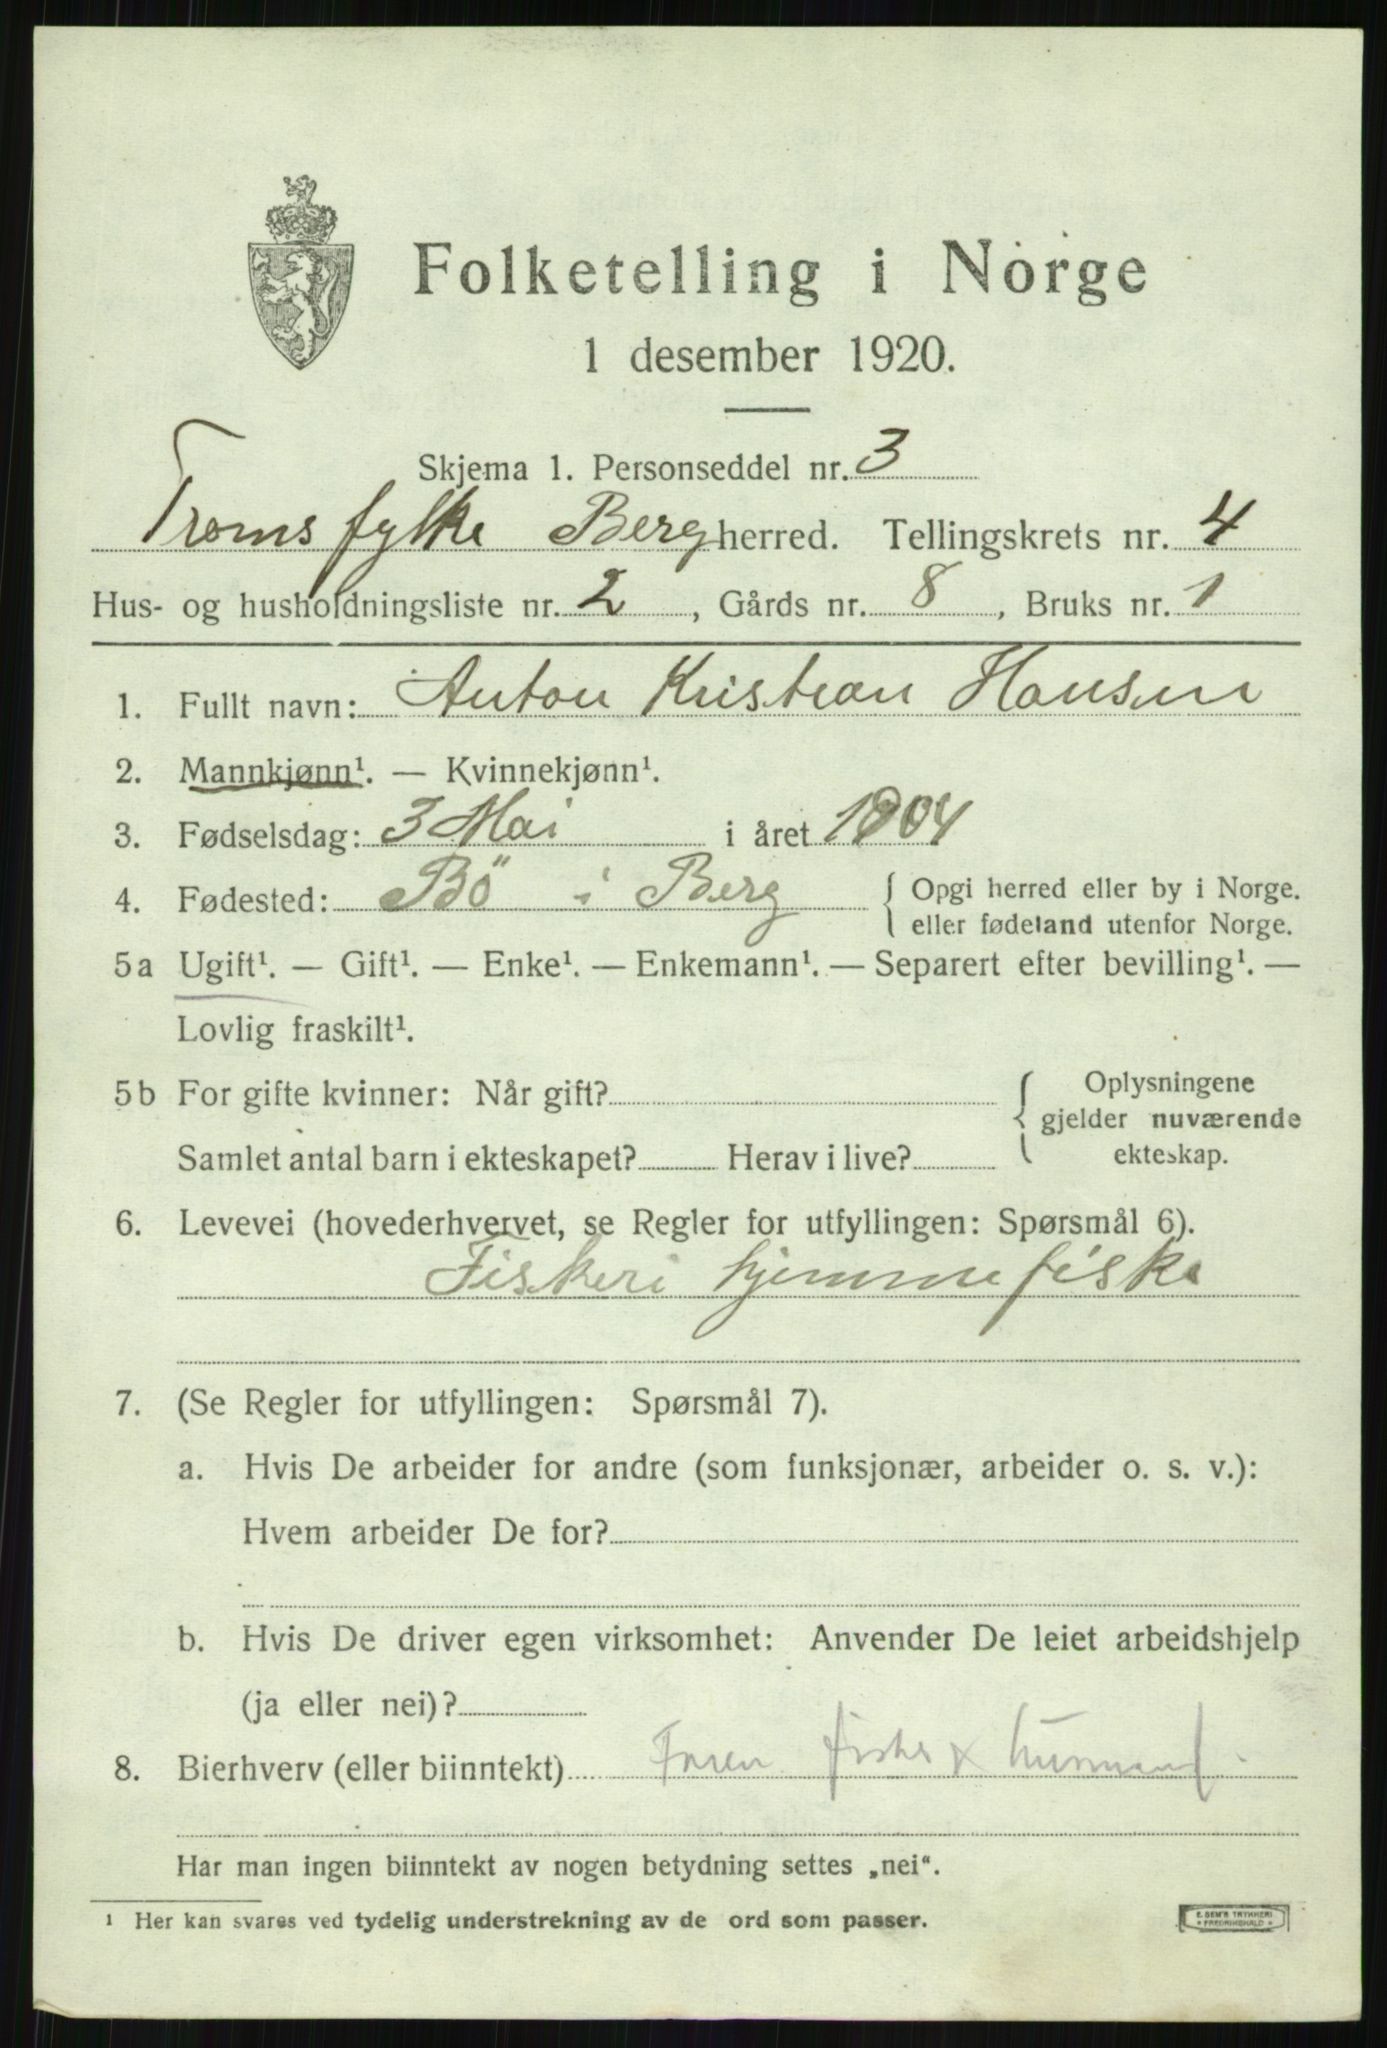 Folketelling i Norge
1 desember 1920.
Skjema 1. Personseddel nr. 3
Troms fylke Berg herred. Tellingskrets nr. 4
Hus- og husholdningsliste nr. 2, Gårds nr. 8, Bruks nr. 1
1. Fullt navn: Anton Kristian Hansen
2. Mannkjønn¹. — Kvinnekjønn¹.
3. Fødselsdag: 3 Mai i året 1904
4. Fødested: Bö i Berg { Opgi herred eller by i Norge.
eller fødeland utenfor Norge.
5a Ugift¹. — Gift¹. — Enke¹. — Enkemann¹. — Separert efter bevilling¹. —
Lovlig fraskilt¹.
5b For gifte kvinner: Når gift? { Oplysningene
gjelder nuværende
Samlet antal barn i ekteskapet? Herav i live? ekteskap.
6. Levevei (hovederhvervet, se Regler for utfyllingen: Spørsmål 6).
Fiskeri hjemmefiske
7. (Se Regler for utfyllingen: Spørsmål 7).
a. Hvis De arbeider for andre (som funksjonær, arbeider o. s. v.):
Hvem arbeider De for?
b. Hvis De driver egen virksomhet: Anvender De leiet arbeidshjelp
(ja eller nei)?
8. Bierhverv (eller biinntekt) Faren fisker x husmand
Har man ingen biinntekt av nogen betydning settes „nei“.
¹ Her kan svares ved tydelig understrekning av de ord som passer.
E. SEM'S TRYKKERI
* FREDRIKSHALD *